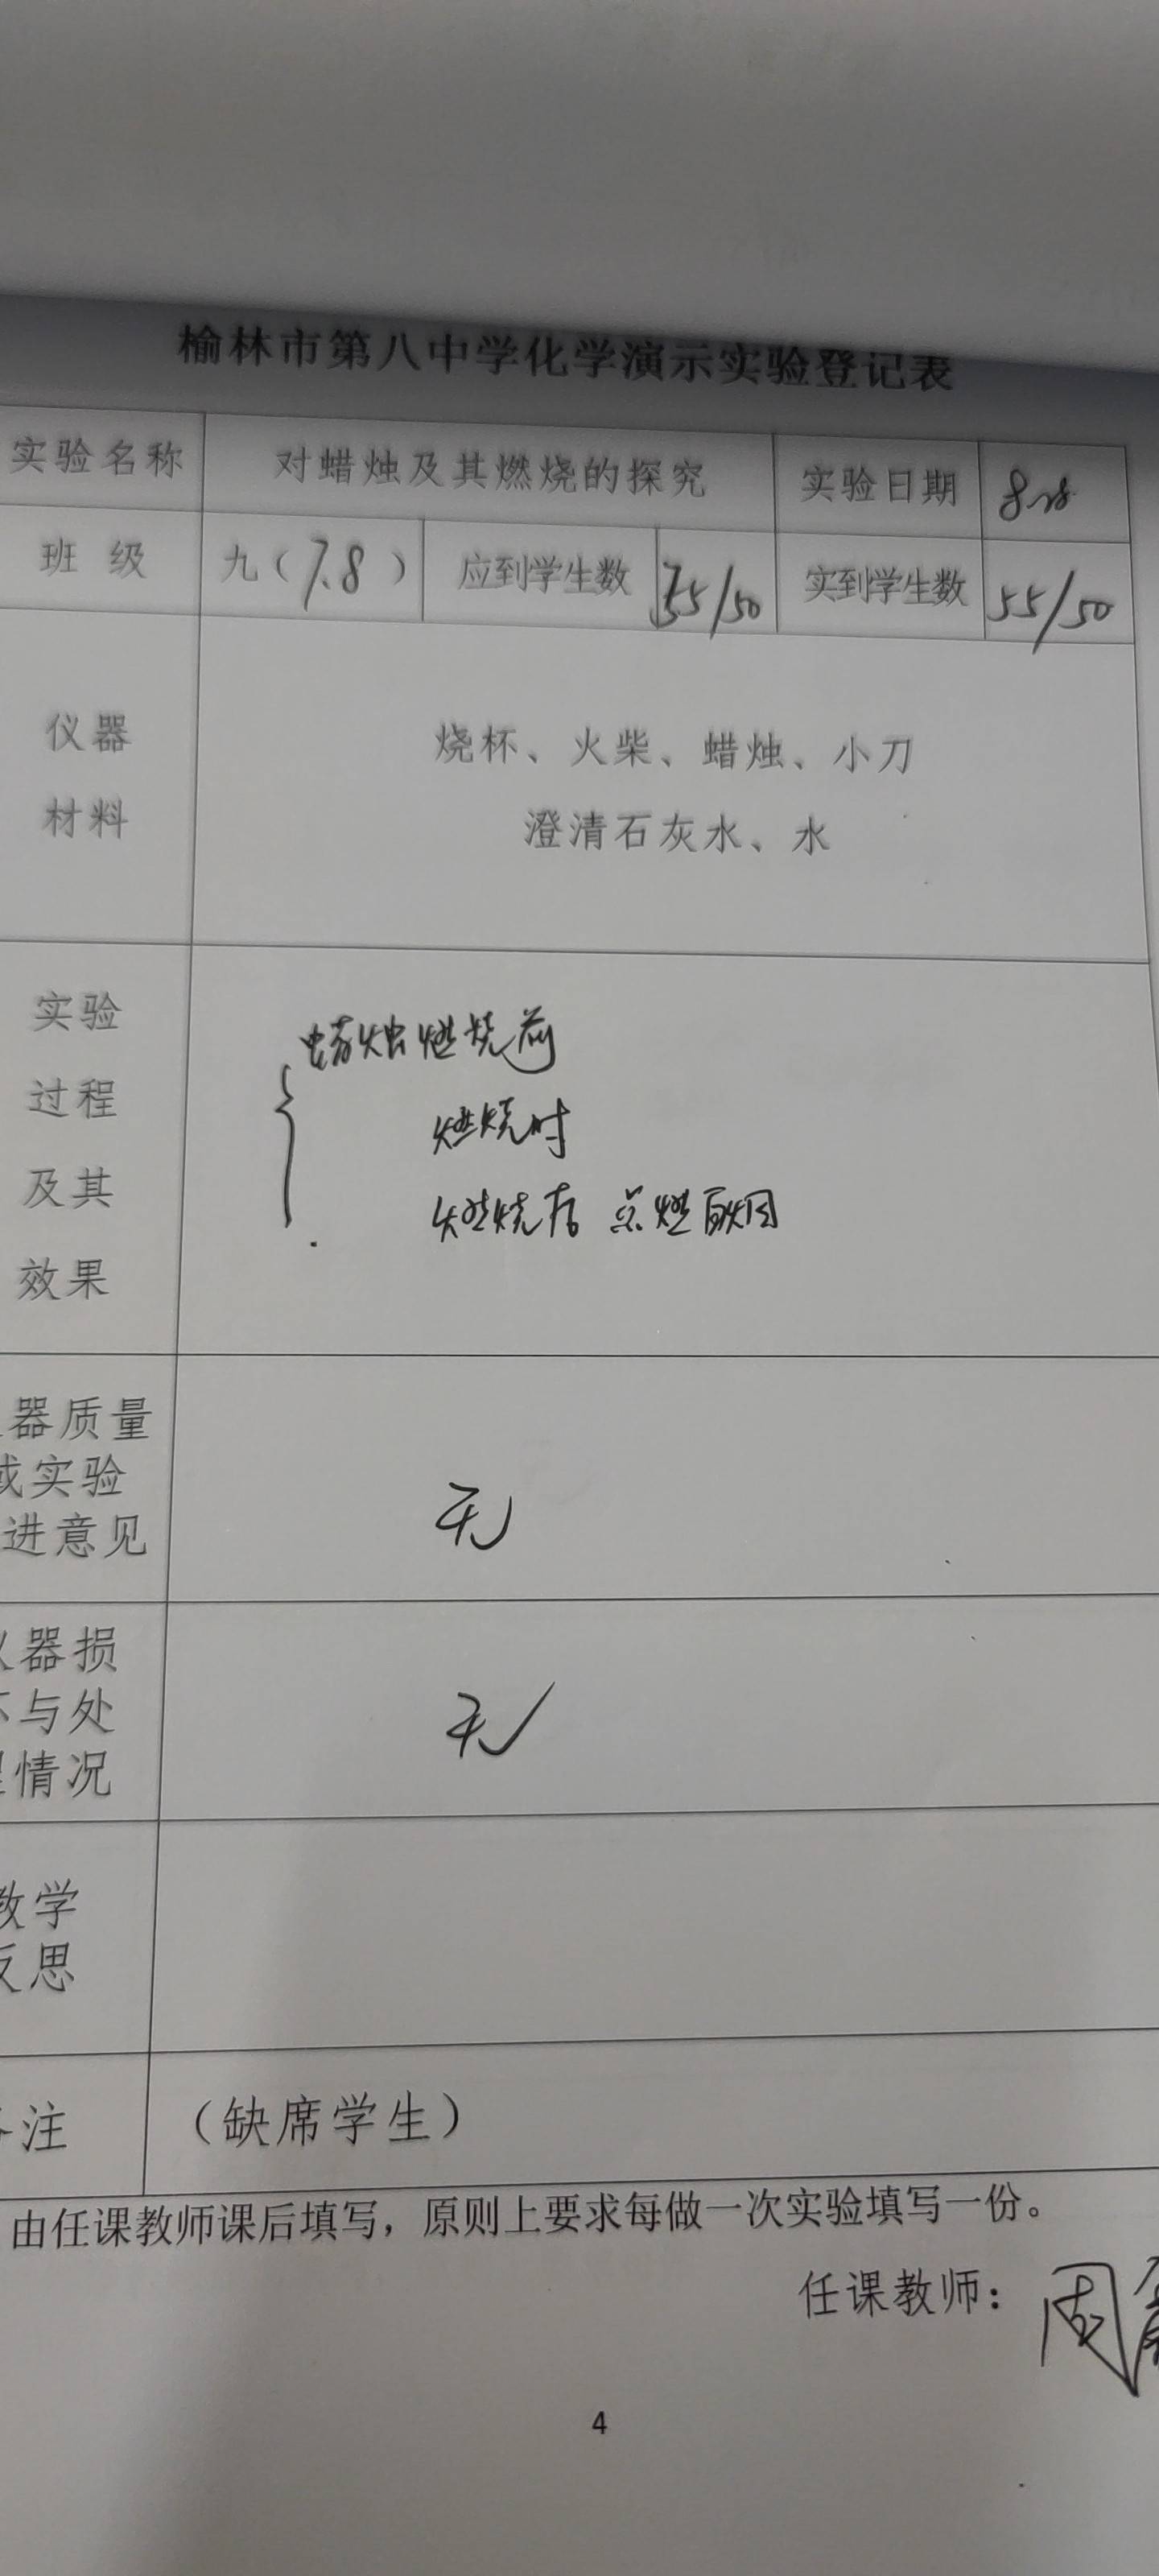 榆林市第八中学化学演示实验登记表
实验名称 对蜡烛及其燃烧的探究 实验日期
班 级 九(7.8) 应到学生数 55/50 实到学生数 55/50
仪器
材料
烧杯、火柴、蜡烛、小刀
澄清石灰水、水
实验
过程
及其
效果
蜡烛燃烧前
燃烧时
燃烧后 点燃白烟
器质量
或实验
进意见
无
器损
与处
情况
无
教学
反思
注 (缺席学生)
由任课教师课后填写,原则上要求每做一次实验填写一份。
任课教师: 周
4